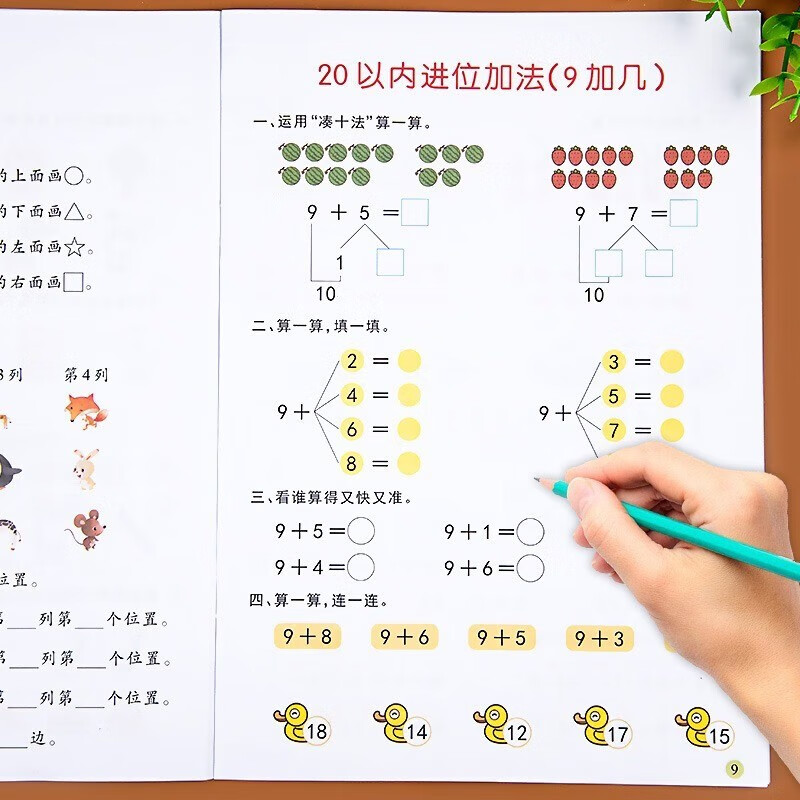 的上面画○。
的下面画△。
的左面画☆。
的右面画□。
3列 第4列
位置。
第___列第___个位置。
第___列第___个位置。
第___列第___个位置。
____边。
20以内进位加法(9加几)
一、运用“凑十法”算一算。
9 + 5 = □ 9 + 7 = □
1
10 10
二、算一算,填一填。
2 = 3 =
4 = 5 =
9 + 9 +
6 = 7 =
8 =
三、看谁算得又快又准。
9+5=○ 9+1=○
9+4=○ 9+6=○
四、算一算,连一连。
9+8 9+6 9+5 9+3
18 14 12 17 15
9